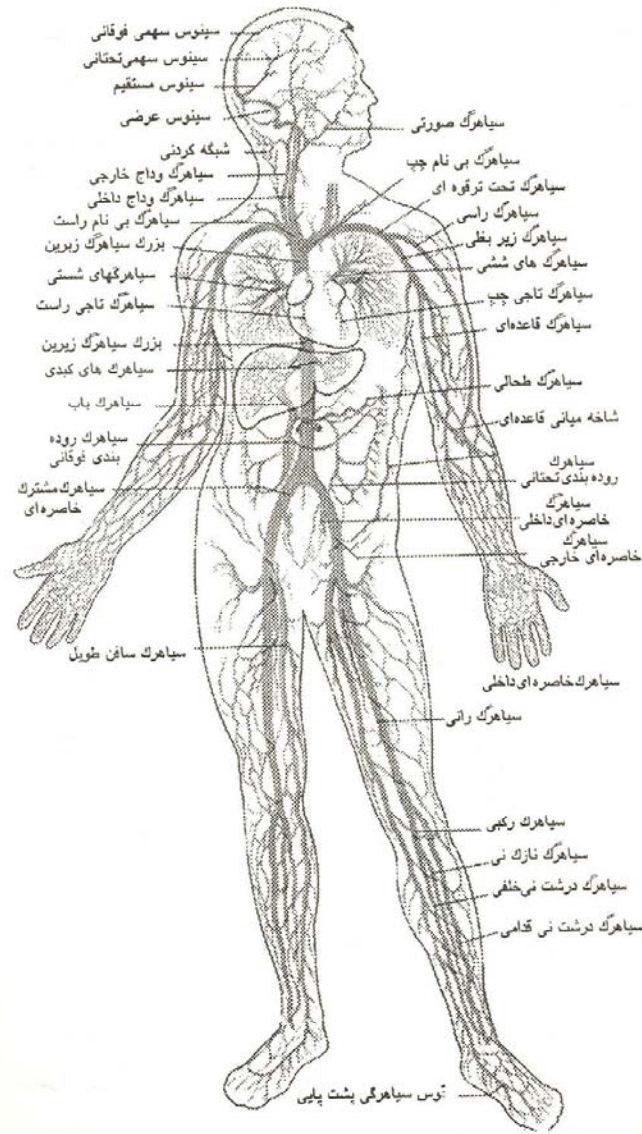 سینوس سهمی فوقانی
سینوس سهمی تحتانی
سینوس مستقیم
سینوس عرضی
شبگه کردنی
سیاهرگ وداج خارجی
سیاهرگ وداج داخلی
سیاهرگ بی نام راست
بزرک سیاهرگ زبرین
سیاهرگهای شستی
سیاهرگ تاجی راست
بزرک سیاهرگ زیرین
سیاهرک های کبدی
سیاهرک باب
سیاهرک روده
بندی فوقانی
سیاهرک مشترك
خاصره ای
سیاهرک سافن طویل
سیاهرگ صورتی
سیاهرگ بی نام چپ
سیاهرگ تحت ترقوه ای
سیاهرگ راسی
سیاهرگ زیر بغلی
سیاهرگ های ششی
سیاهرگ تاجی چپ
سیاهرگ قاعده‌ای
سیاهرگ طحالی
شاخه میانی قاعده‌ای
سیاهرگ
روده بندی تحتانی
سیاهرگ
خاصره ای داخلی
سیاهرگ
خاصره ای خارجی
سیاهرک خاصره ای داخلی
سیاهرگ رانی
سیاهرک رکبی
سیاهرگ نازک نی
سیاهرگ درشت نی خلفی
سیاهرگ درشت نی قدامی
قوس سیاهرگی پشت پایی